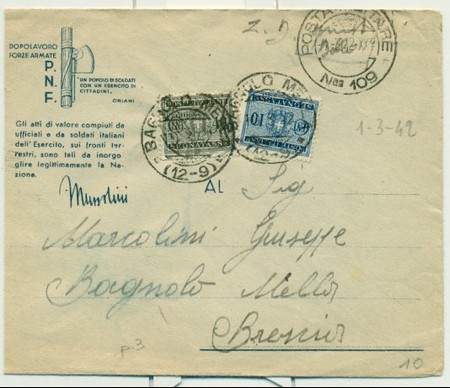 DOPOLAVORO
FORZE ARMATE
P.
N.
F.
"UN POPOLO DI SOLDATI
CON UN ESERCITO DI
CITTADINI„
ORIANI
Gli atti di valore compiuti da
ufficiali e da soldati italiani
dell'Esercito, sui fronti ter-
restri, sono tali da inorgo-
glire legittimamente la Na-
zione.
Mussolini
POSTA MILITARE
Nº 109
SEGNATASSE
10
1-3-42
(12-9)
AL Sig
Marcolini Giuseppe
Bagnolo Mella
Brescia
p.3
10